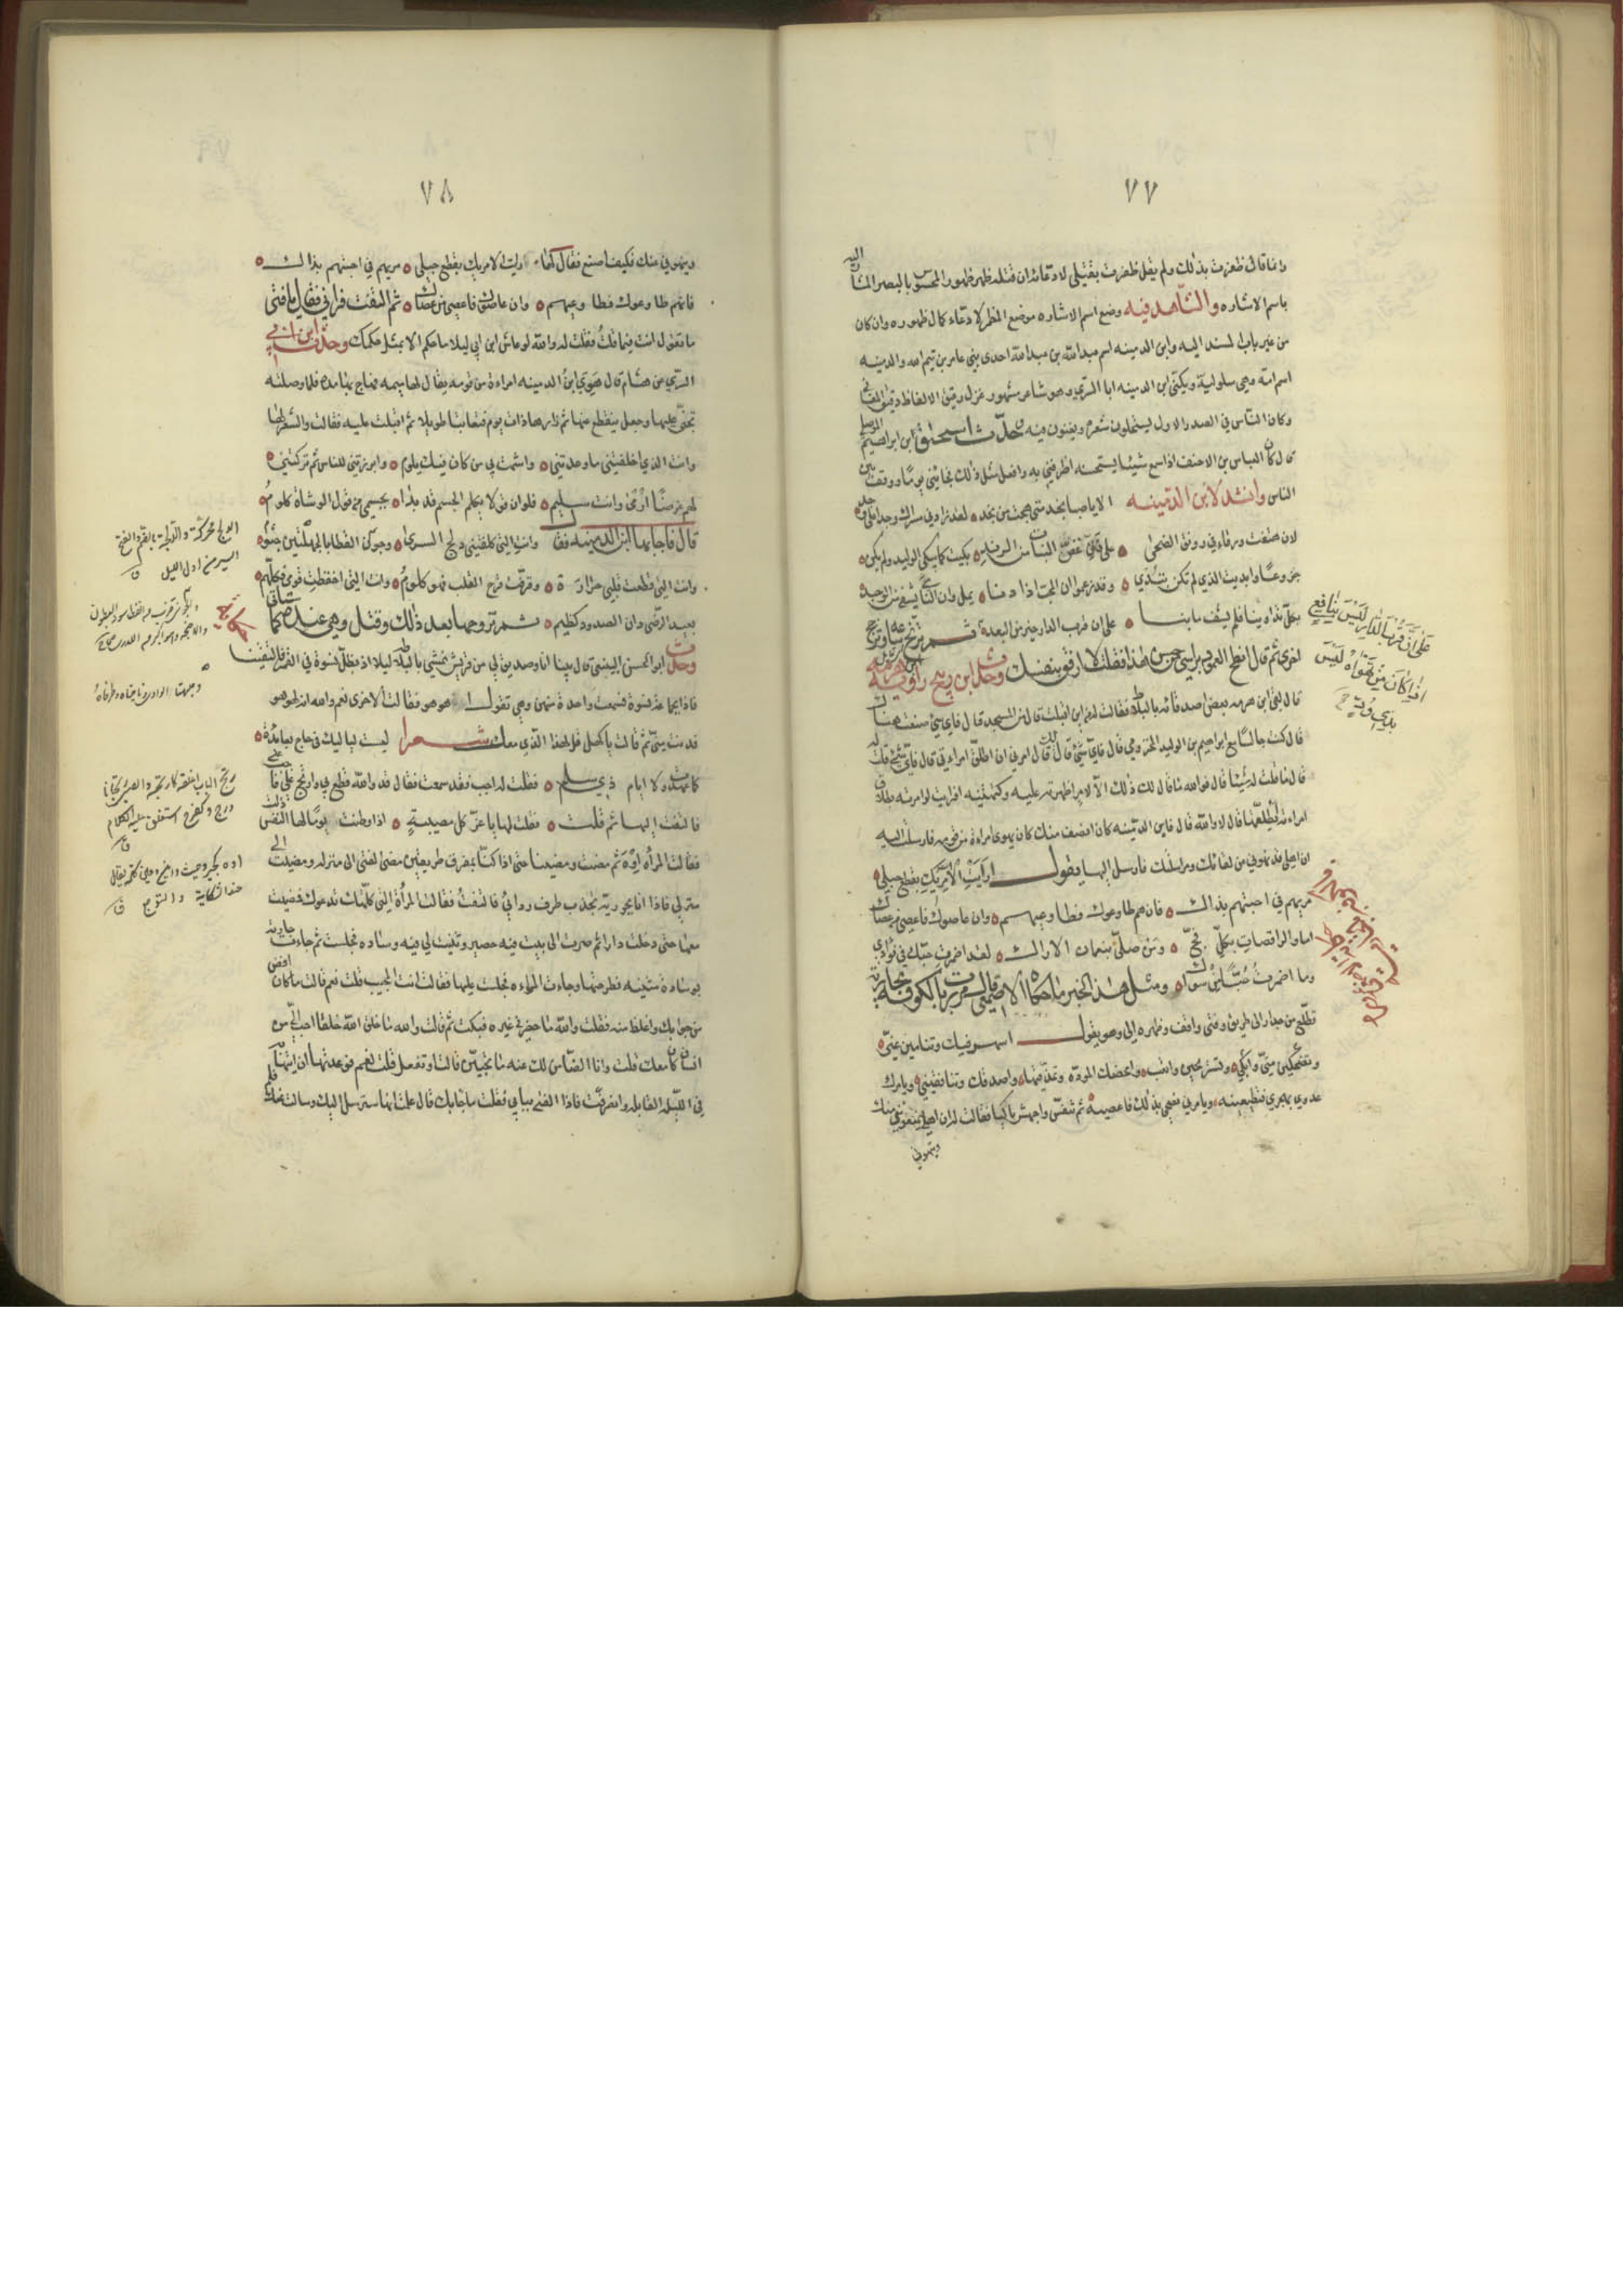 ٧٧
وانما قال ظفرت بذلك ولم يقل ظفرت بقتلي لادعائه ان قتله ظهر ظهور المحسوس بالبصر المشار اليه
باسم الاشاره والشاهد فيه وضع اسم الاشاره موضع المظهر لادعاء كمال ظهوره وان كان
من غير باب المسند اليه وابن الدمينه اسم عبدالله بن عبدالله احدى بني عامر بن تيم الله والدمينه
اسم امه وهي سلولية ويكنى ابن الدمينه ابا السري وهو شاعر مشهور غزل رقيق الالفاظ دقيق المعاني
وكان الناس في الصدر الاول يستحلون شعره ويغنون فيه حدث اسحق ابن ابراهيم الموصلي
قال كان العباس بن الاحنف اذا سمع شيئا يستحسنه اطرفني به وافعل مثل ذلك فجائني يوما ووقف بين
الناس وانشد لابن الدمينه الا يا صبا نجد متى هجت من نجد لقد زادني مسراك وجدا على وجد
لان هتفت ورقاء في رونق الضحى على فنن غض النبات من الرند بكيت كما يبكي الوليد ولم يكن
جزوعا وابديت الذي لم تكن تبدي وقد زعموا ان المحب اذا دنا يمل وان النأي يشفي من الوجد
بكل تداوينا فلم يشف ما بنا على ان قرب الدار خير من البعد ثم ترنح ساعة وترجح
اخرى ثم قال انطح العمود براسي من حسن هذا فقلت لا ارفق بنفسك وحدث ابن ربيح راوية ابن هرمه
قال لقي ابن هرمه بعض اصدقائه بالبلاط فقال له من اين اقبلت قال من المسجد قال فاي شيء صنعت هناك
قال كنت جالسا مع ابراهيم بن الوليد المخزومي قال فاي شيء قال لك قال امرني ان اطلق امراءتي قال فاي شيء قلت له
قال ما قلت له شيئا قال فوالله ما قال لك ذلك الا لامر اظهرته عليه وكتمتنيه افرايت لو امرته بطلاق
امراءته ليطلقها قال لا والله قال فابن الدمينه كان انصف منك كان يهوى امراءة من قومه فارسلت اليه
ان اهلي قد نهوني من لقائك ومراسلتك فارسل اليها يقول اَرَاَيْتِ الامريك بقطع حبلي
مريهم في احبتهم بذاك فان هم طاوعوك فطاوعيهم وان عاصوك فاعصي من عصاك
اما والراقصات بكل فج ومن صلى بنعمان الاراك لقد اضمرت حبك في فؤادي
وما اضمرت حبا من سواك ومثل هذا الخبر ما حكاه الاصمعي قال مررت بالكوفة بجارية
تطلع من جدار الى طريق وفتى واقف وظهره الي وهو يقول اسهر فيك وتنامين عني
وتضحكين مني وابكي وتستريحين واتعب وامحضك الموده وتمذقينها واصدقك وتنافقيني ويامرك
عدوي بهجري فتطيعينه ويامرني نصيحي بذلك فاعصيه ثم تنفس واجهش باكيا فقالت له ان اهلي يمنعوني منك
وينهوني
عَلَى اَنَّ قُرْبَ الدَّارِ لَيْسَ بِنَافِعٍ
اذا كَانَ مَنْ تَهْوَاهُ لَيْسَ
بِذِي وُدِّ
٧٨
وينهوني منك فكيف اصنع فقال لها اريت الامريك بقطع حبلي مريهم في احبتهم بذاك
فانهم طاوعوك فطاوعيهم وان عاصوك فاعصي من عصاك ثم التفت فراني فقال يا فتى
ما تقول انت فيما قلت فقلت له والله لو عاش ابن ابي ليلا ما حكم الا بمثل حكمك وحدث ابن ابي
السري عن هشام قال هوي ابن الدمينه امراءة من قومه يقال لها اميمه فهاج بها مدة فلما وصلته
تجنى عليها وجعل ينقطع عنها ثم زارها ذات يوم فتعاتبا طويلا ثم اقبلت عليه فقالت والشعر لها
وانت الذي اخلفتني ما وعدتني واشمت بي من كان فيك يلوم وابرزتني للناس ثم تركتني
لهم غرضا ارمى وانت سليم فلو ان قولا يكلم الجسم قد بدا بجسمي من قول الوشاة كلوم
قال فاجابها ابن الدمينه فقال وانت التي كلفتني دلج السرى وجون القطا بالجلهتين جثوم
وانت التي قطعت قلبي حزازة وقرفت قرح القلب فهو كلوم وانت التي احفظت قومي فكلهم
بعيد الرضى دان الصدود كظيم ثم تزوجها بعد ذلك وقتل وهي عنده كما سياتي
وحدث ابو الحسن الينبعي قال بينا انا وصديق لي من قريش نمشي بالبلاط ليلا اذ بظل نسوة في القمر فالتفتنا
فاذا بجماعة نسوة فسمعت واحدة منهن وهي تقول اهو هو فقالت الاخرى نعم والله انه لهو هو
فدنت مني ثم قالت يا كهل قل لهذا الذي معك شعرا ليست لياليك في خاخ بعائدة
كما عهدت ولا ايام ذي سلم فقلت له اجب فقد سمعت فقال قد والله قطع بي وارتج علي فاجب عني
فالتفت اليها ثم قلت فقلت لها يا عز كل مصيبة اذا وطنت يوما لها النفس ذلت
فقالت المرأة اوه ثم مضت ومضينا حتى اذا كنا بمفرق طريقين مضى الفتى الى منزله ومضيت الى
منزلي فاذا انا بجويرية تجذب طرف ردائي فالتفت فقالت المرأة التي كلمتك تدعوك فمضيت
معها حتى دخلت دارا ثم صرت الى بيت فيه حصير وثنيت لي فيه وساده فجلست ثم جاءت جارية
بوسادة مثنيه فطرحتها وجاءت المرأه فجلست عليها فقالت انت المجيب قلت نعم قالت ما كان افض
من جوابك واغلظ منه فقلت والله ما حضرني غيره فبكت ثم قالت والله ما خلق الله خلقا احب الي من
انسان كان معك قلت وانا الضامن لك عنه ما تحبين قالت او تفعل قلت نعم فوعدتها ان اتيها
في الليلة القابله وانصرفت فاذا الفتى ببابي فقلت ما جابك قال علمت انها سترسل اليك وسالت عنك فلم
الدلج محركة والدلجة بالضم والفتح
السير من اول الليل
رتج الباب اغلقه كارتجه والصبي رتجانا
درج وكفرح استغلق عليه الكلام